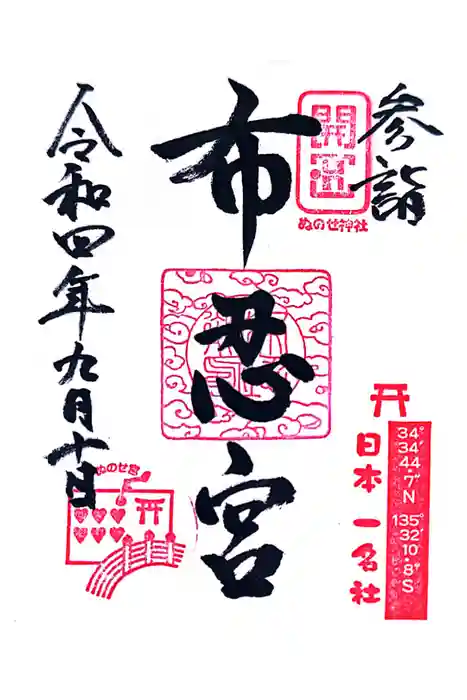 参詣
開運
ぬのせ神社
布忍宮
令和四年九月十日
ぬのせ宮
日本一名社
34°
34′
44
·7″
N
135°
32′
10
·8″
S